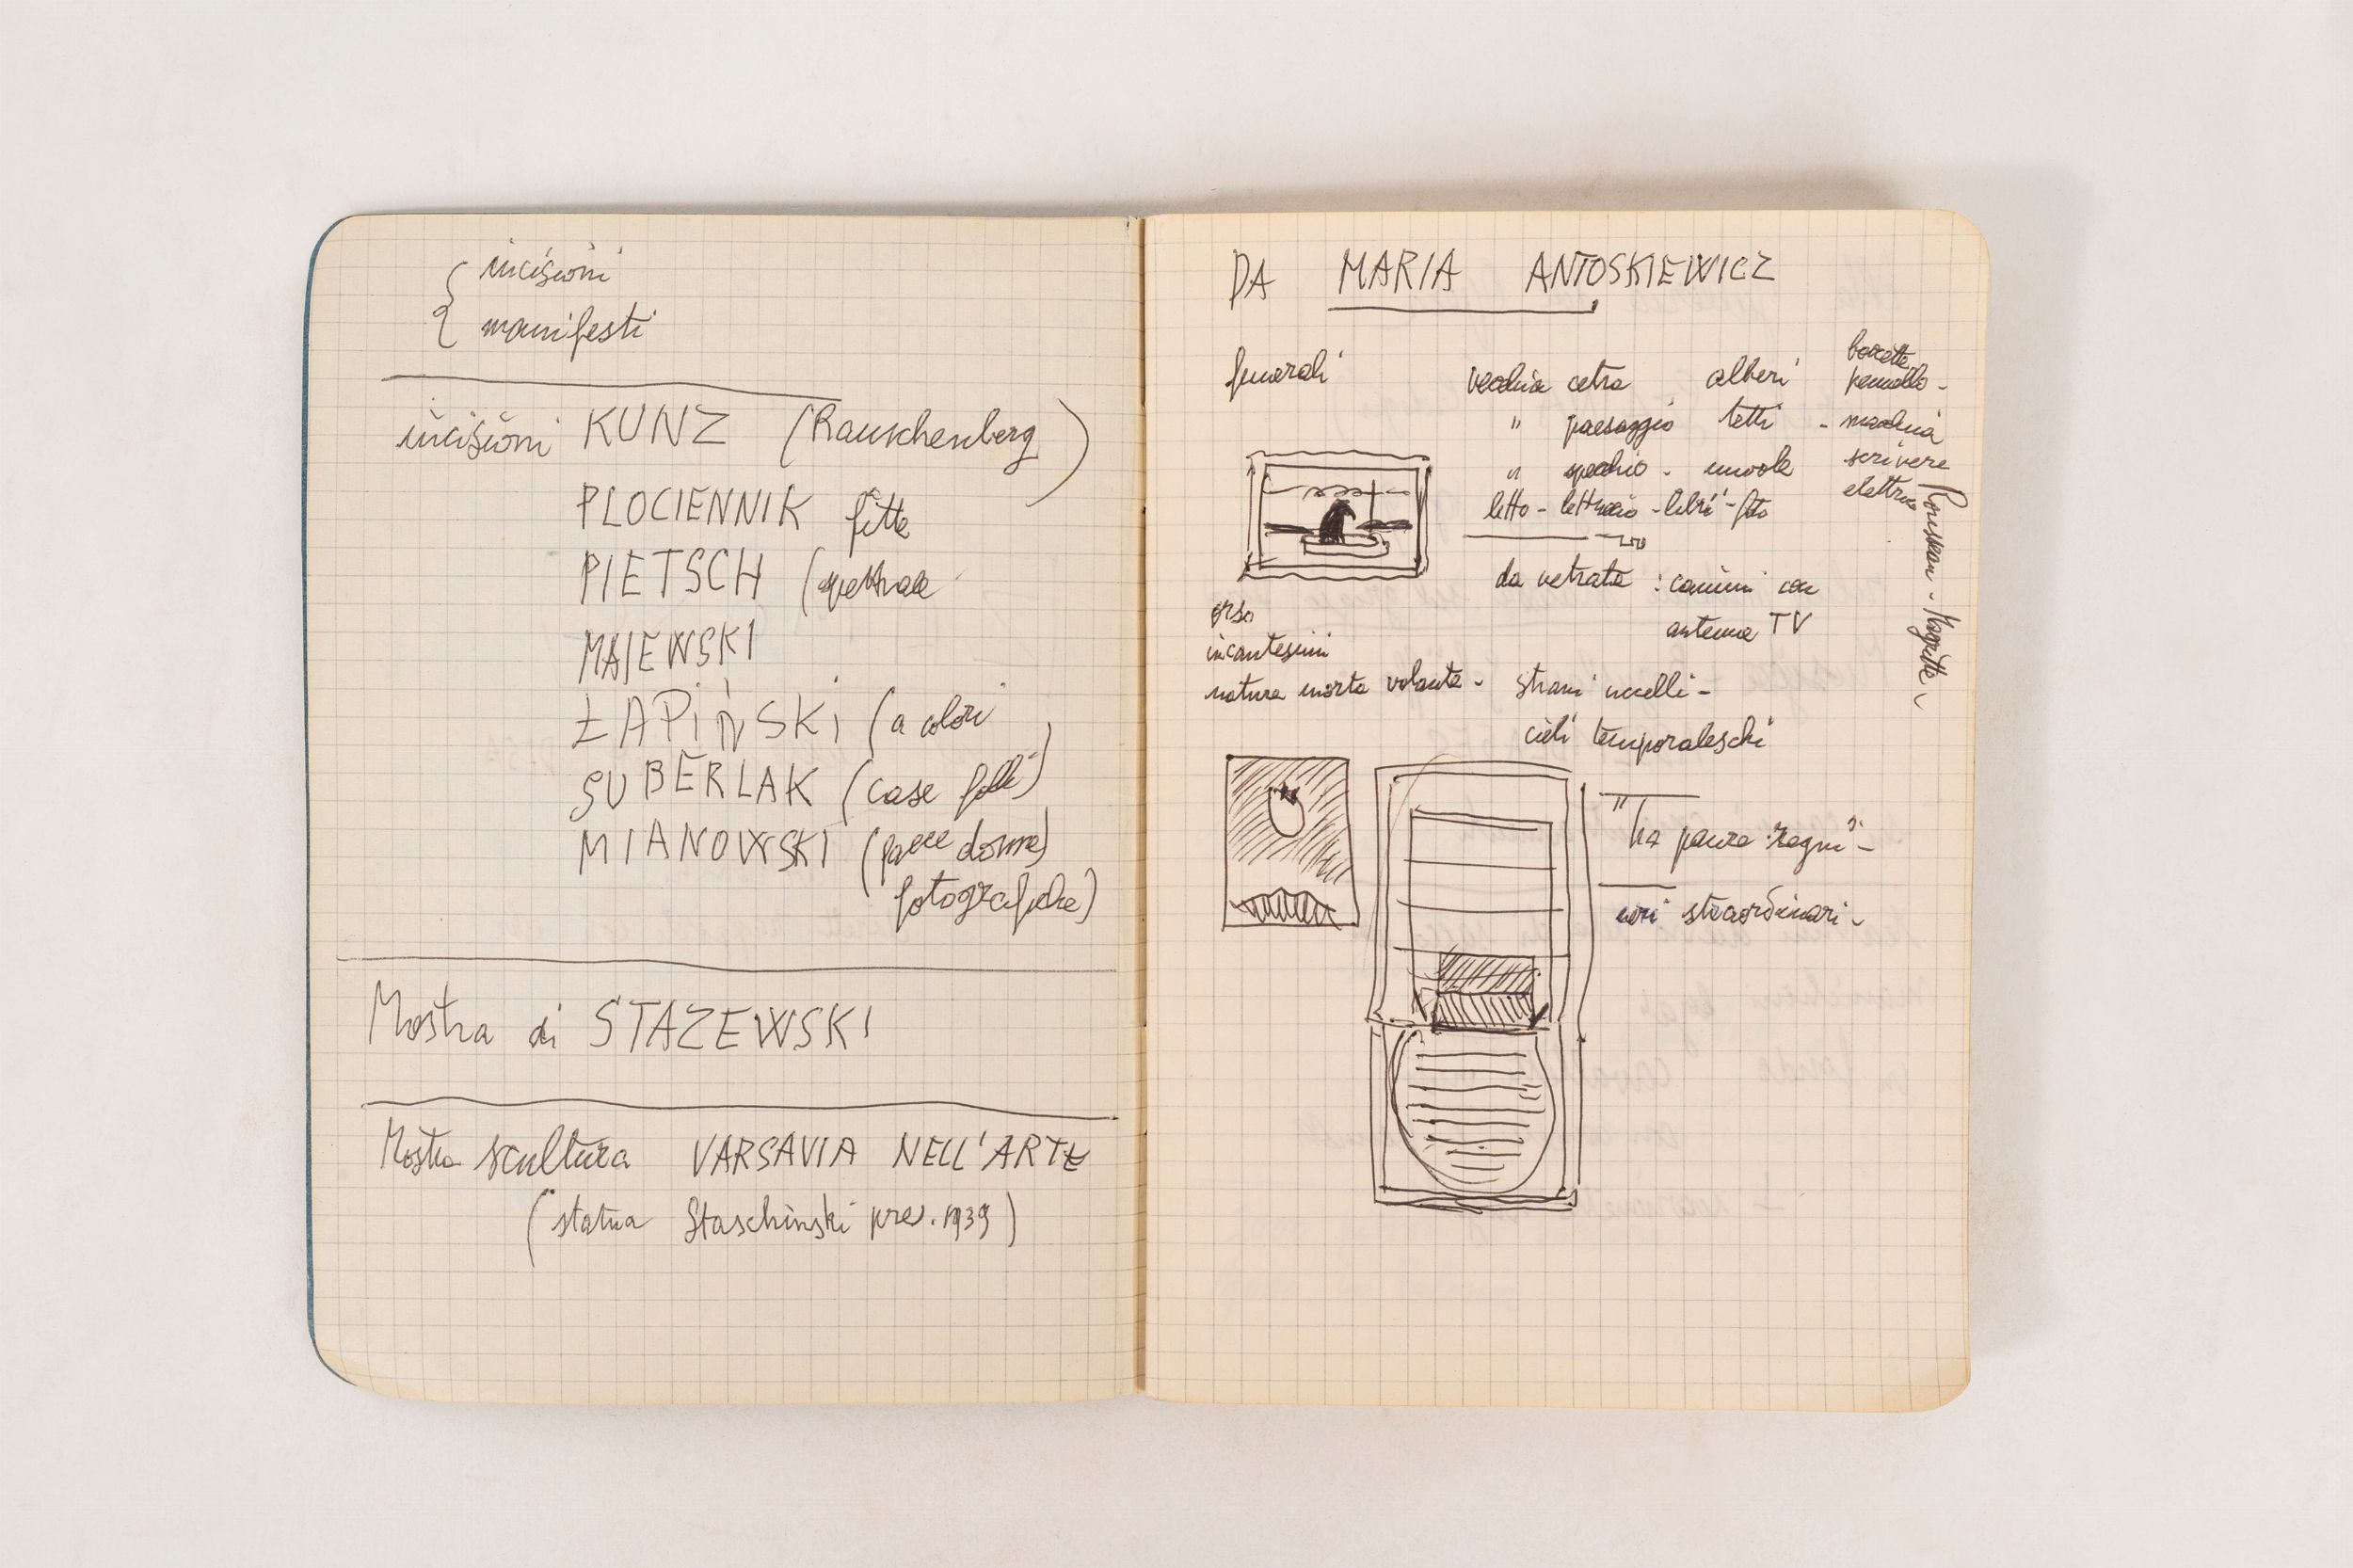 incisioni
manifesti
incisioni KUNZ (Rauschenberg)
PLOCIENNIK fitte
PIETSCH (spettrale
MAJEWSKI
ŁAPIŃSKI (a colori
SUBERLAK (case folli)
MIANOWSKI (facce donne)
fotografiche)
Mostra di STAZEWSKI
Mostra scultura VARSAVIA NELL'ARTE
(statua Staschinski pres. 1939)
DA MARIA ANTOSKIEWICZ
funerali
vecchia cetra alberi
" paesaggio tetti
" specchio - nuvole
letto - lettuccio - libri - foto
boccette
pennello -
- macchina
scrivere
elettrica
Rousseau - Magritte -
da vetrata : camini con
antenne TV
orso
incantesimi
natura morta volante - strani uccelli -
cieli temporaleschi
"ha paura ragni" -
neri straordinari -